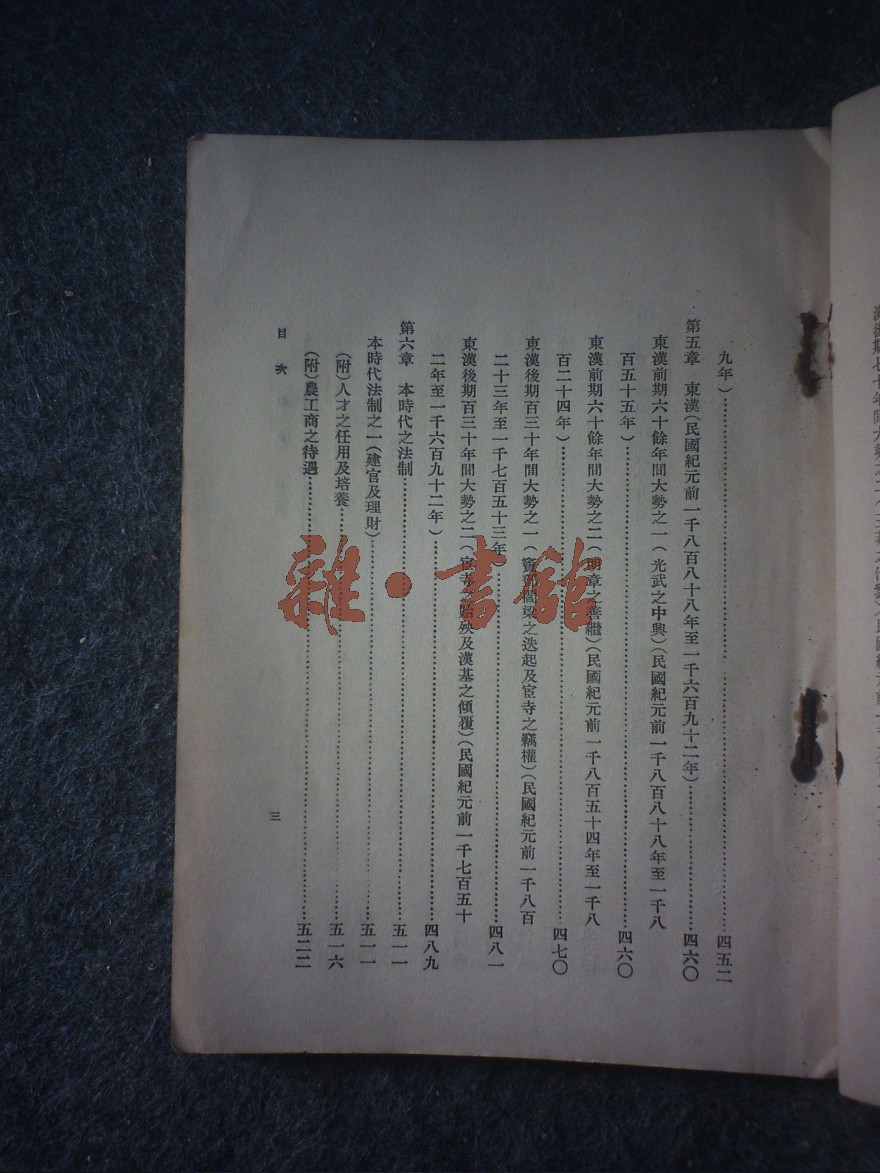 九年)四五二
第五章 東漢(民國紀元前一千八百八十八年至一千六百九十二年)四六〇
東漢前期六十餘年間大勢之一(光武之中興)(民國紀元前一千八百八十八年至一千八
百五十五年)四六〇
東漢前期六十餘年間大勢之二(明章之善繼)(民國紀元前一千八百五十四年至一千八
百二十四年)四七〇
東漢後期百三十年間大勢之一(竇鄧閻梁之迭起及宦寺之竊權)(民國紀元前一千八百
二十三年至一千七百五十三年)四八一
東漢後期百三十年間大勢之二(宦寺之貽殃及漢基之傾覆)(民國紀元前一千七百五十
二年至一千六百九十二年)四八九
第六章 本時代之法制五一一
本時代法制之一(建官及理財)五一一
(附)人才之任用及培養五一六
(附)農工商之待遇五二二
目次
三
雜·書館